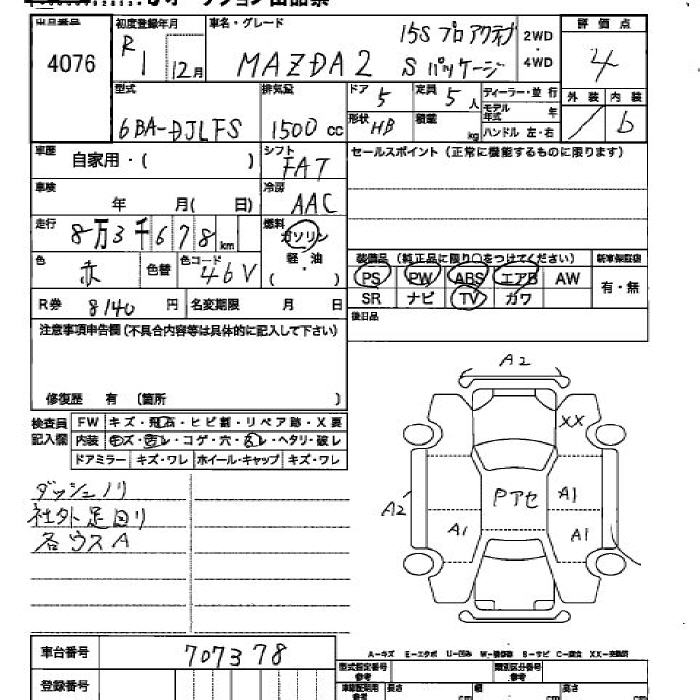 出品番号 初度登録年月 車名・グレード 15S プロアクティブ 2WD・4WD 評価点
4076 R1 12月 MAZDA2 Sパッケージ 4
型式 排気量 ドア 5 定員 5人 ディーラー・並行 外装 内装
6BA-DJLFS 1500cc 形状 HB 積載 kg モデル年式 年 / b
ハンドル 左・右
車歴 自家用・( ) シフト FAT セールスポイント (正常に機能するものに限ります)
車検 年 月( 日) 冷房 AAC
走行 8万3千678km 燃料 ガソリン
軽・油
( )
色 赤 色替 色コード 46V 装備品 (純正品に限り○をつけてください)
PS PW ABS エアB AW 有・無
SR ナビ TV カワ
R券 8140円 名変期限 月 日 後日品
注意事項申告欄(不具合内容等は具体的に記入して下さい)
修復歴 有 〔箇所 〕
検査員記入欄 FW キズ・飛石・ヒビ割・リペア跡・X要
内装 キズ・汚レ・コゲ・穴・スレ・ヘタリ・破レ
ドアミラー キズ・ワレ ホイール・キャップ キズ・ワレ
ダッシュノリ
社外足回り
各ウスA
A2
XX
Pアセ A1
A2
A1 A1
車台番号 707378
登録番号
A-キズ E-エクボ U-凹み W-補修跡 B-サビ C-腐食 XX-交換済
型式指定番号 参考 類別区分番号 参考
長さ cm 幅 cm 高さ cm